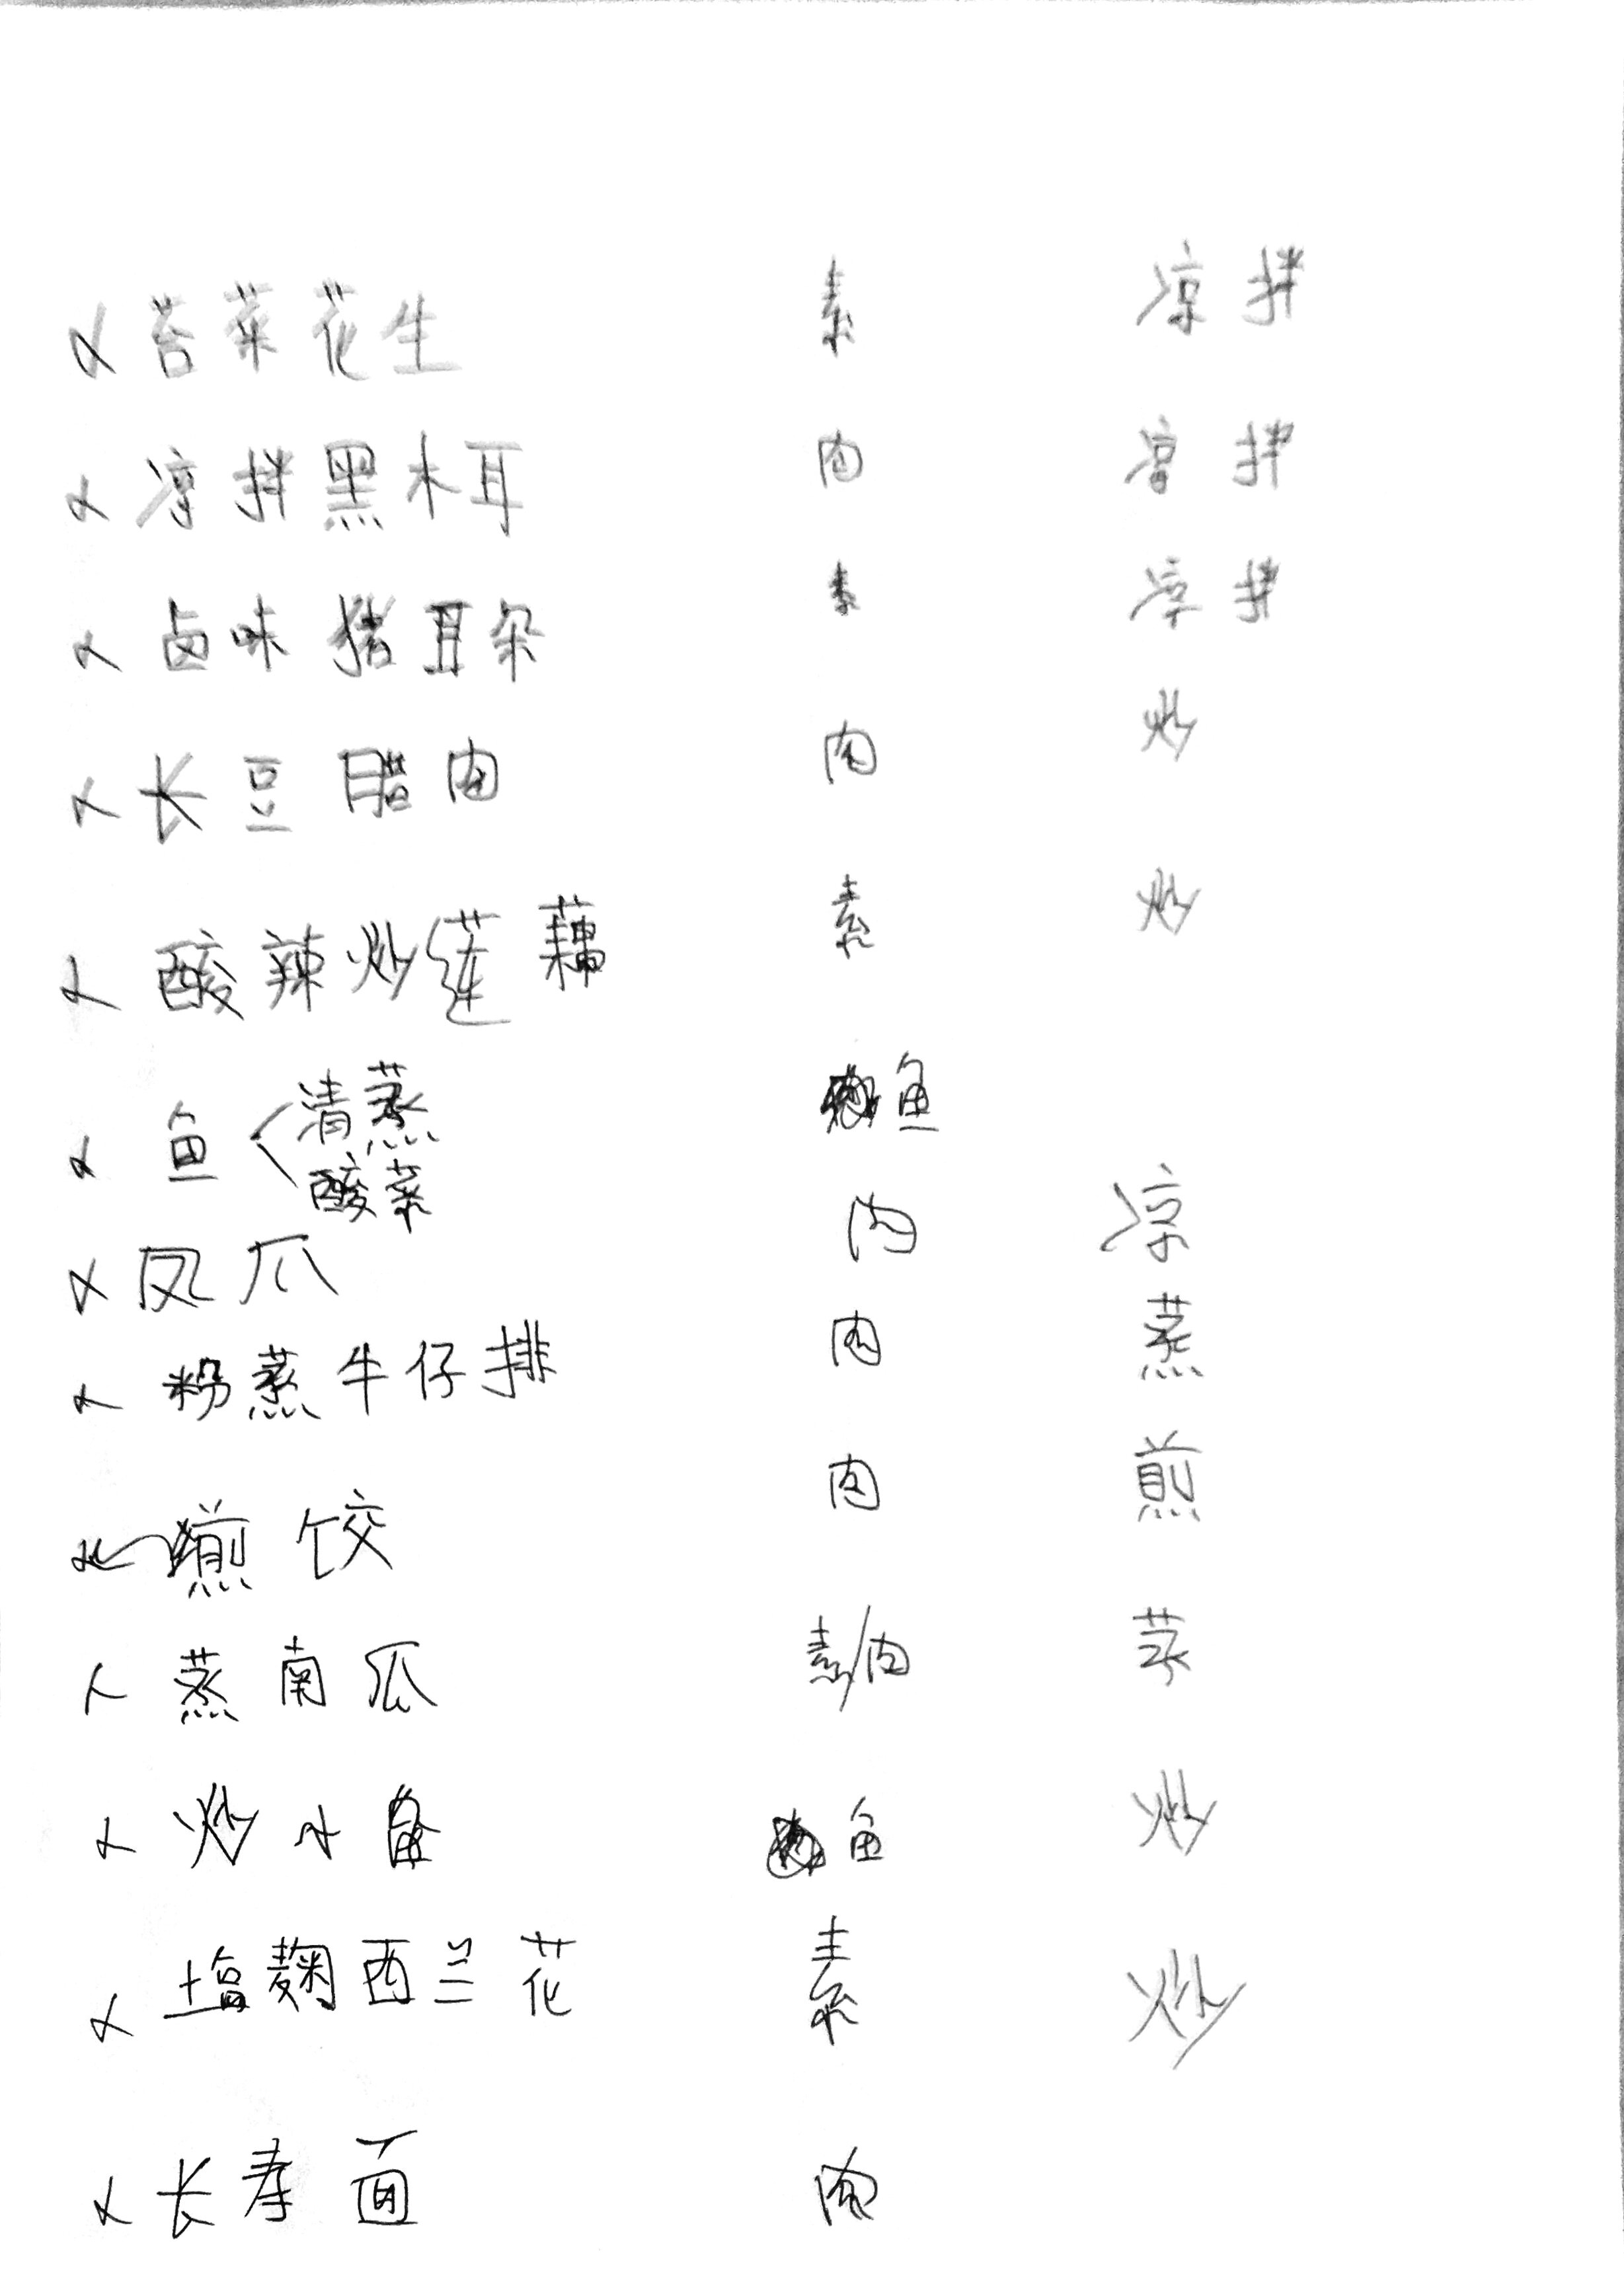 苔菜花生 素 凉拌
凉拌黑木耳 肉 凉拌
卤味猪耳朵 素 凉拌
长豆腊肉 肉 炒
酸辣炒莲藕 素 炒
鱼 清蒸 鱼
酸菜
凤爪 肉 凉
粉蒸牛仔排 肉 蒸
煎饺 肉 煎
蒸南瓜 素/肉 蒸
炒小鱼 鱼 炒
盐麹西兰花 素 炒
长寿面 肉